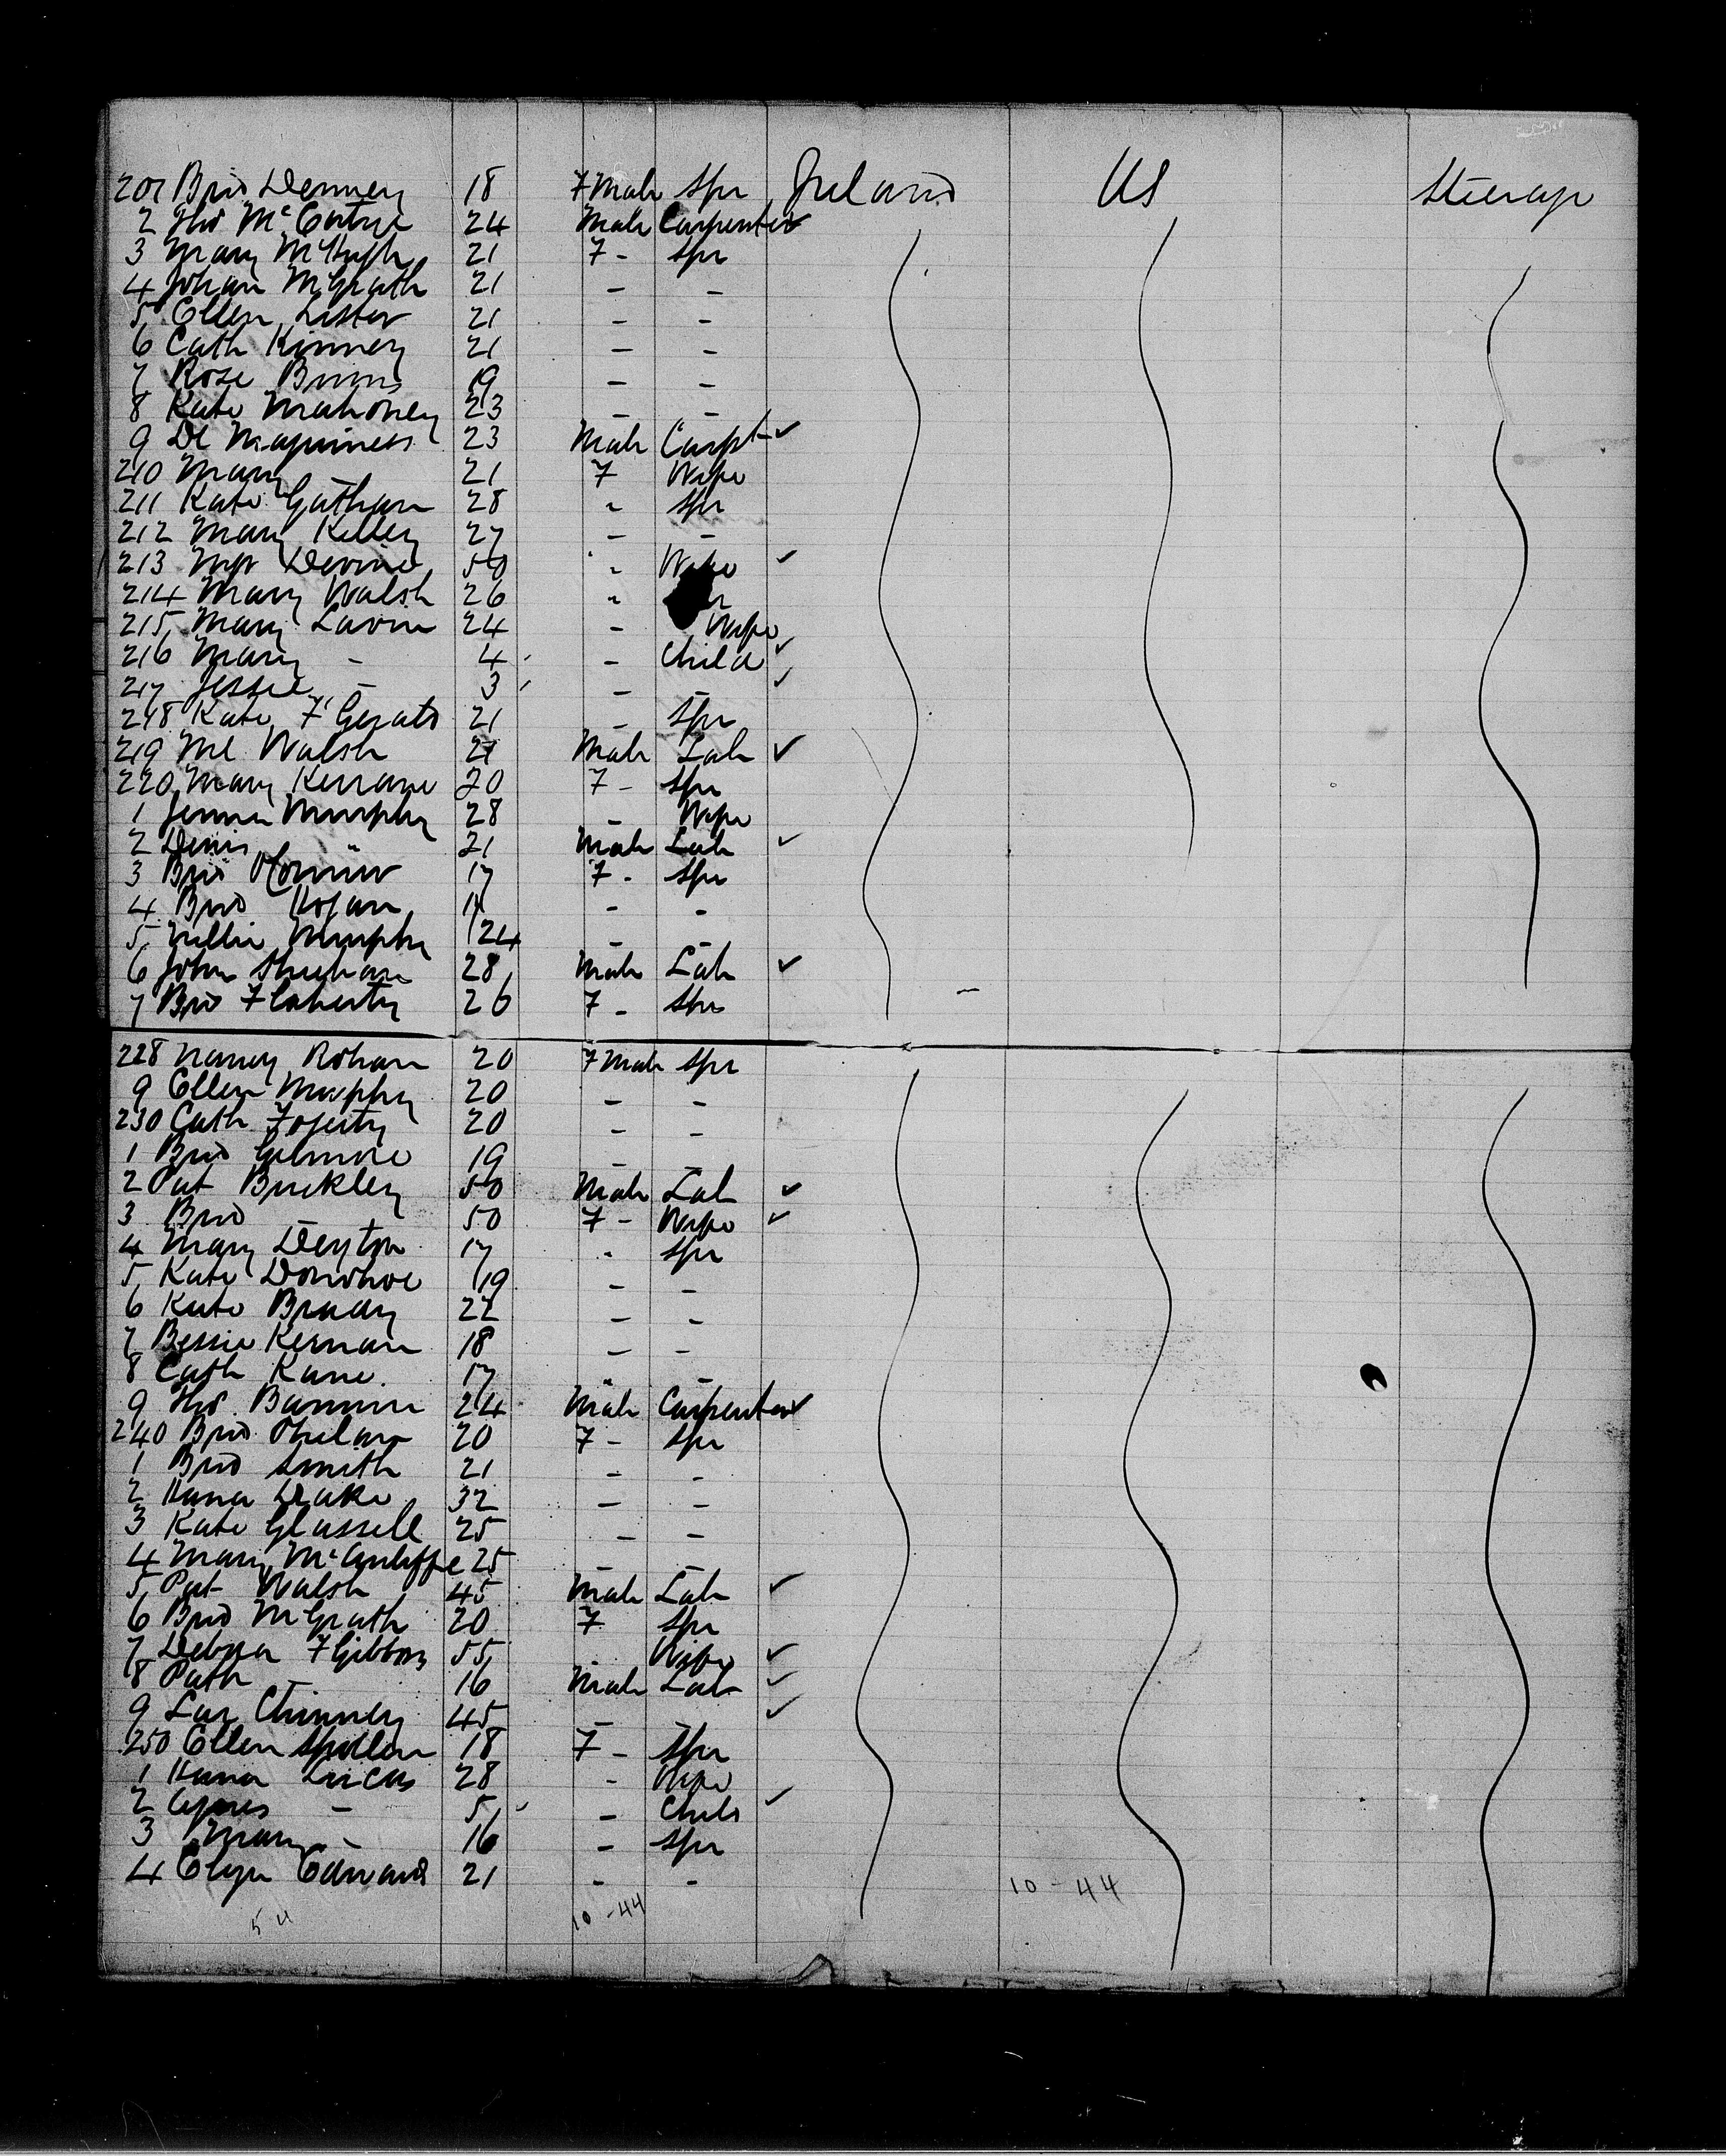 201 Brid Denney 18 Fmale Spr Ireland US Steerage
2 Tho McEntyre 24 Male Carpenter ✓
3 Mary McHugh 21 F - Spr
4 Johan McGrath 21 - -
5 Ellen Lister 21 - -
6 Cath Kinney 21 - -
7 Rose Burns 19 - -
8 Kate Mahoney 23 - -
9 Dl Maginness 23 Male Carpt ✓
210 Mary - 21 F Wife
211 Kate 28 " Spr
212 Mary Kelley 27 - -
213 Mgt Devine 50 " Wife ✓
214 Mary Walsh 26 "
215 Mary Lavin 24 - Wife
216 Mary - 4 - Child ✓
217 Jessie - 3 - - ✓
218 Kate F'Gerald 21 - Spr
219 Ml Walsh 21 Male Lab ✓
220 Mary Kerrane 20 F - Spr
1 Murphy 28 - Wife
2 Denis 21 Male Lab ✓
3 Brid OConnor 17 F - Spr
4 Brid Hogan - -
5 Nellie Murphy 24 - -
6 John Sheehan 28 Male Lab ✓
7 Brid Flaherty 26 F - Spr
228 Nancy Rohan 20 Fmale Spr
9 Ellen Murphy 20 - -
230 Cath Fogerty 20 - -
1 Brid Gilmore 19 - -
2 Pat Buckley 50 Male Lab ✓
3 Brid - 50 F - Wife ✓
4 Mary Deyton 17 " Spr
5 Kate Donohoe 19 - -
6 Kate Brady 22 - -
7 Bessie Kernan 18 - -
8 Cath Kane 17 " -
9 Tho Bannon 24 Male Carpenter ✓
240 Brid Phelan 20 F - Spr
1 Brid Smith 21 - -
2 Hana Drake 32 - -
3 Kate Glassell 25 - -
4 Mary McAuliffe 25 - -
5 Pat Walsh 45 Male Lab ✓
6 Brid McGrath 20 F Spr
7 Debora FGibbons 55 Wife ✓
8 Path - 16 Male Lab ✓
9 45 - - ✓
250 Ellen Spillen 18 F - Spr
1 Hana Lucas 28 - Wife
2 Agnes - 5 - Child ✓
3 Mary - 16 - Spr
4 Edwards 21 - -
10 - 44
54 10 - 44